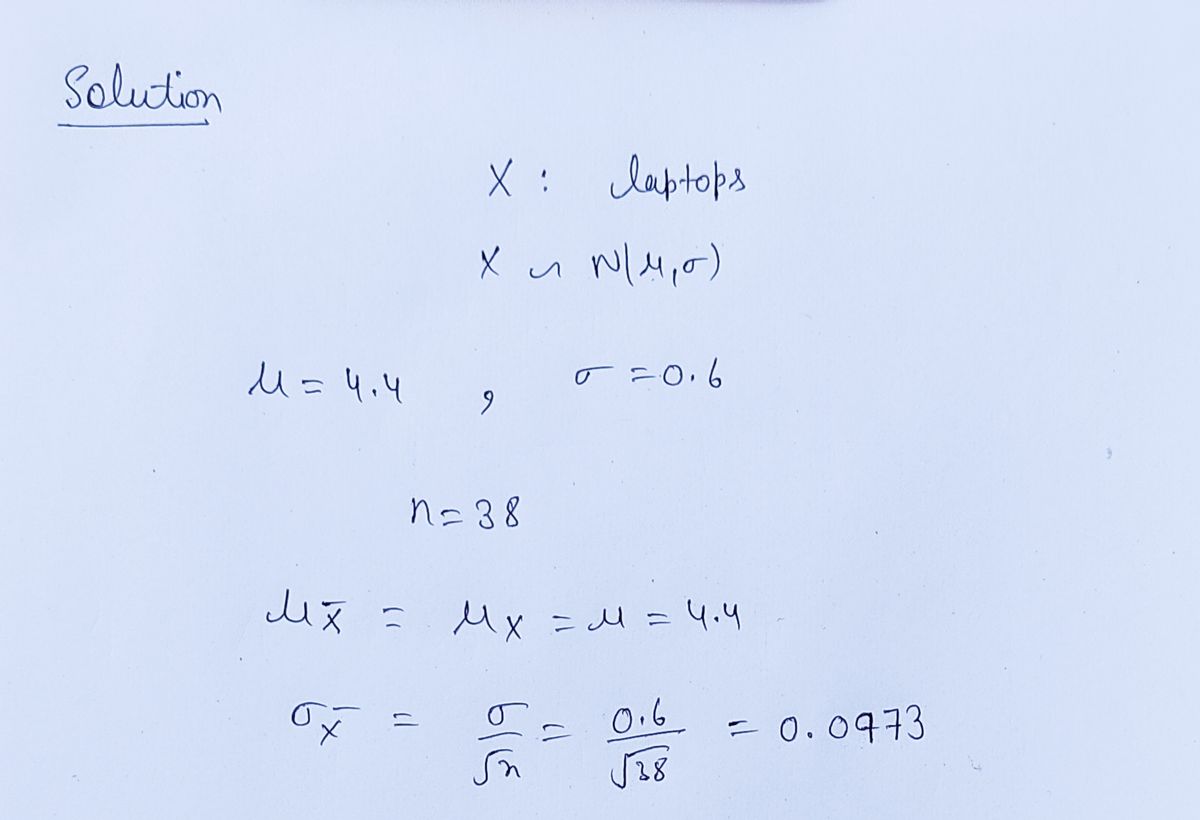 Solution
X : laptops
X ~ N(μ,σ)
μ = 4.4 , σ = 0.6
n = 38
μx̄ = μx = μ = 4.4
σx̄ = σ/√n = 0.6/√38 = 0.0973